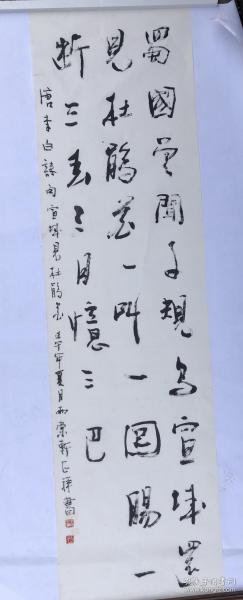 蜀國曾聞子規鳥宣城還
見杜鵑花一叫一回腸一
斷三春三月憶三巴
唐李白詩句宣城見杜鵑花 壬午年夏月